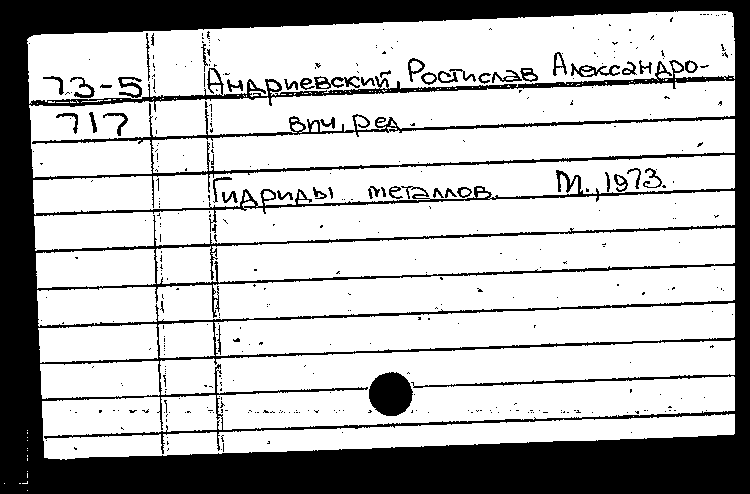 73-5 Андриевский, Ростислав Александро-
717 вич, ред.
Гидриды металлов. М., 1973.